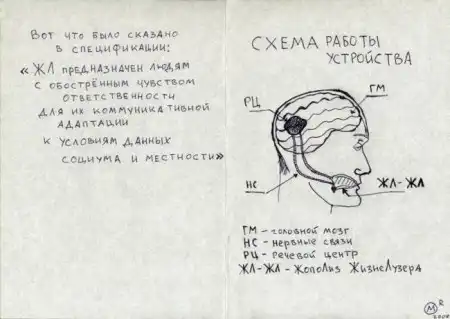 Вот что было сказано
в спецификации:
«ЖЛ предназначен людям
с обострённым чувством
ответственности
для их коммуникативной
адаптации
к условиям данных
социума и местности»
СХЕМА РАБОТЫ
УСТРОЙСТВА
РЦ
ГМ
НС
ЖЛ-ЖЛ
ГМ - головной мозг
НС - нервные связи
РЦ - речевой центр
ЖЛ-ЖЛ - ЖопоЛиз ЖизнеЛузера
М R
2008